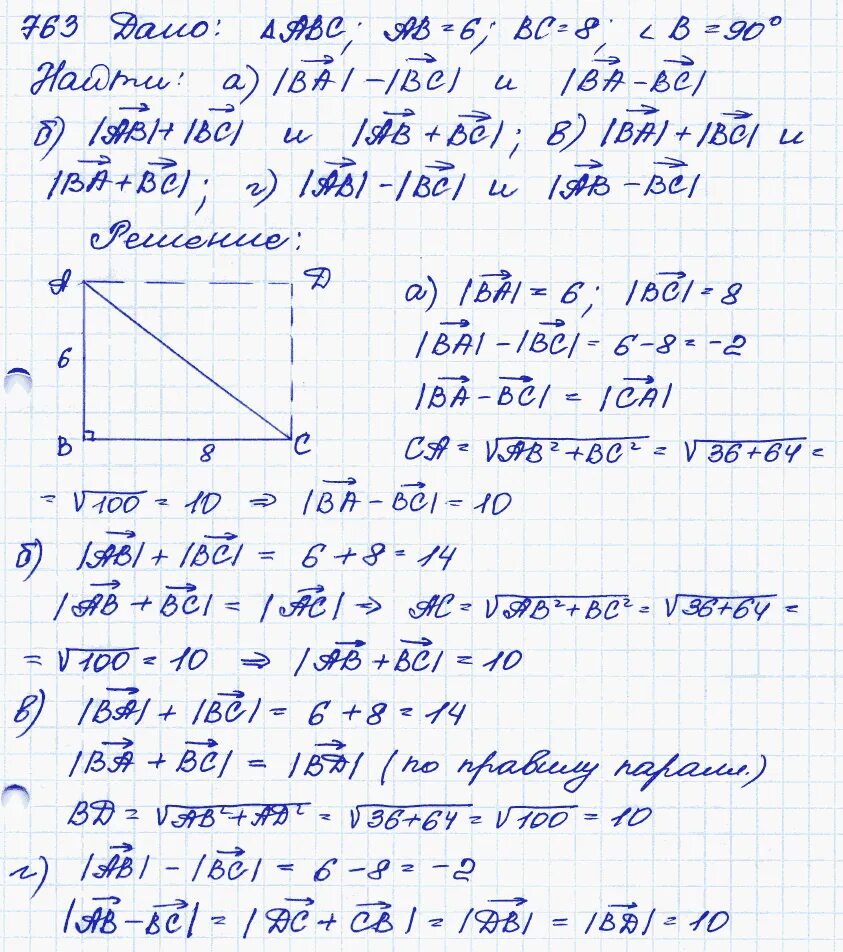 763 Дано: ΔABC; AB = 6; BC = 8; ∠B = 90°
Найти: а) |B͞A| - |B͞C| и |B͞A - B͞C|
б) |A͞B| + |B͞C| и |A͞B + B͞C|; в) |B͞A| + |B͞C| и
|B͞A + B͞C|; г) |A͞B| - |B͞C| и |A͞B - B͞C|
Решение:
A
D
6
B
8
C
а) |B͞A| = 6; |B͞C| = 8
|B͞A| - |B͞C| = 6 - 8 = -2
|B͞A - B͞C| = |C͞A|
CA = √AB² + BC² = √36 + 64 =
= √100 = 10 ⇒ |B͞A - B͞C| = 10
б) |A͞B| + |B͞C| = 6 + 8 = 14
|A͞B + B͞C| = |A͞C| ⇒ AC = √AB² + BC² = √36 + 64 =
= √100 = 10 ⇒ |A͞B + B͞C| = 10
в) |B͞A| + |B͞C| = 6 + 8 = 14
|B͞A + B͞C| = |B͞D| (по правилу паралл.)
BD = √AB² + AD² = √36 + 64 = √100 = 10
г) |A͞B| - |B͞C| = 6 - 8 = -2
|A͞B - B͞C| = |D͞C + C͞B| = |D͞B| = |B͞D| = 10